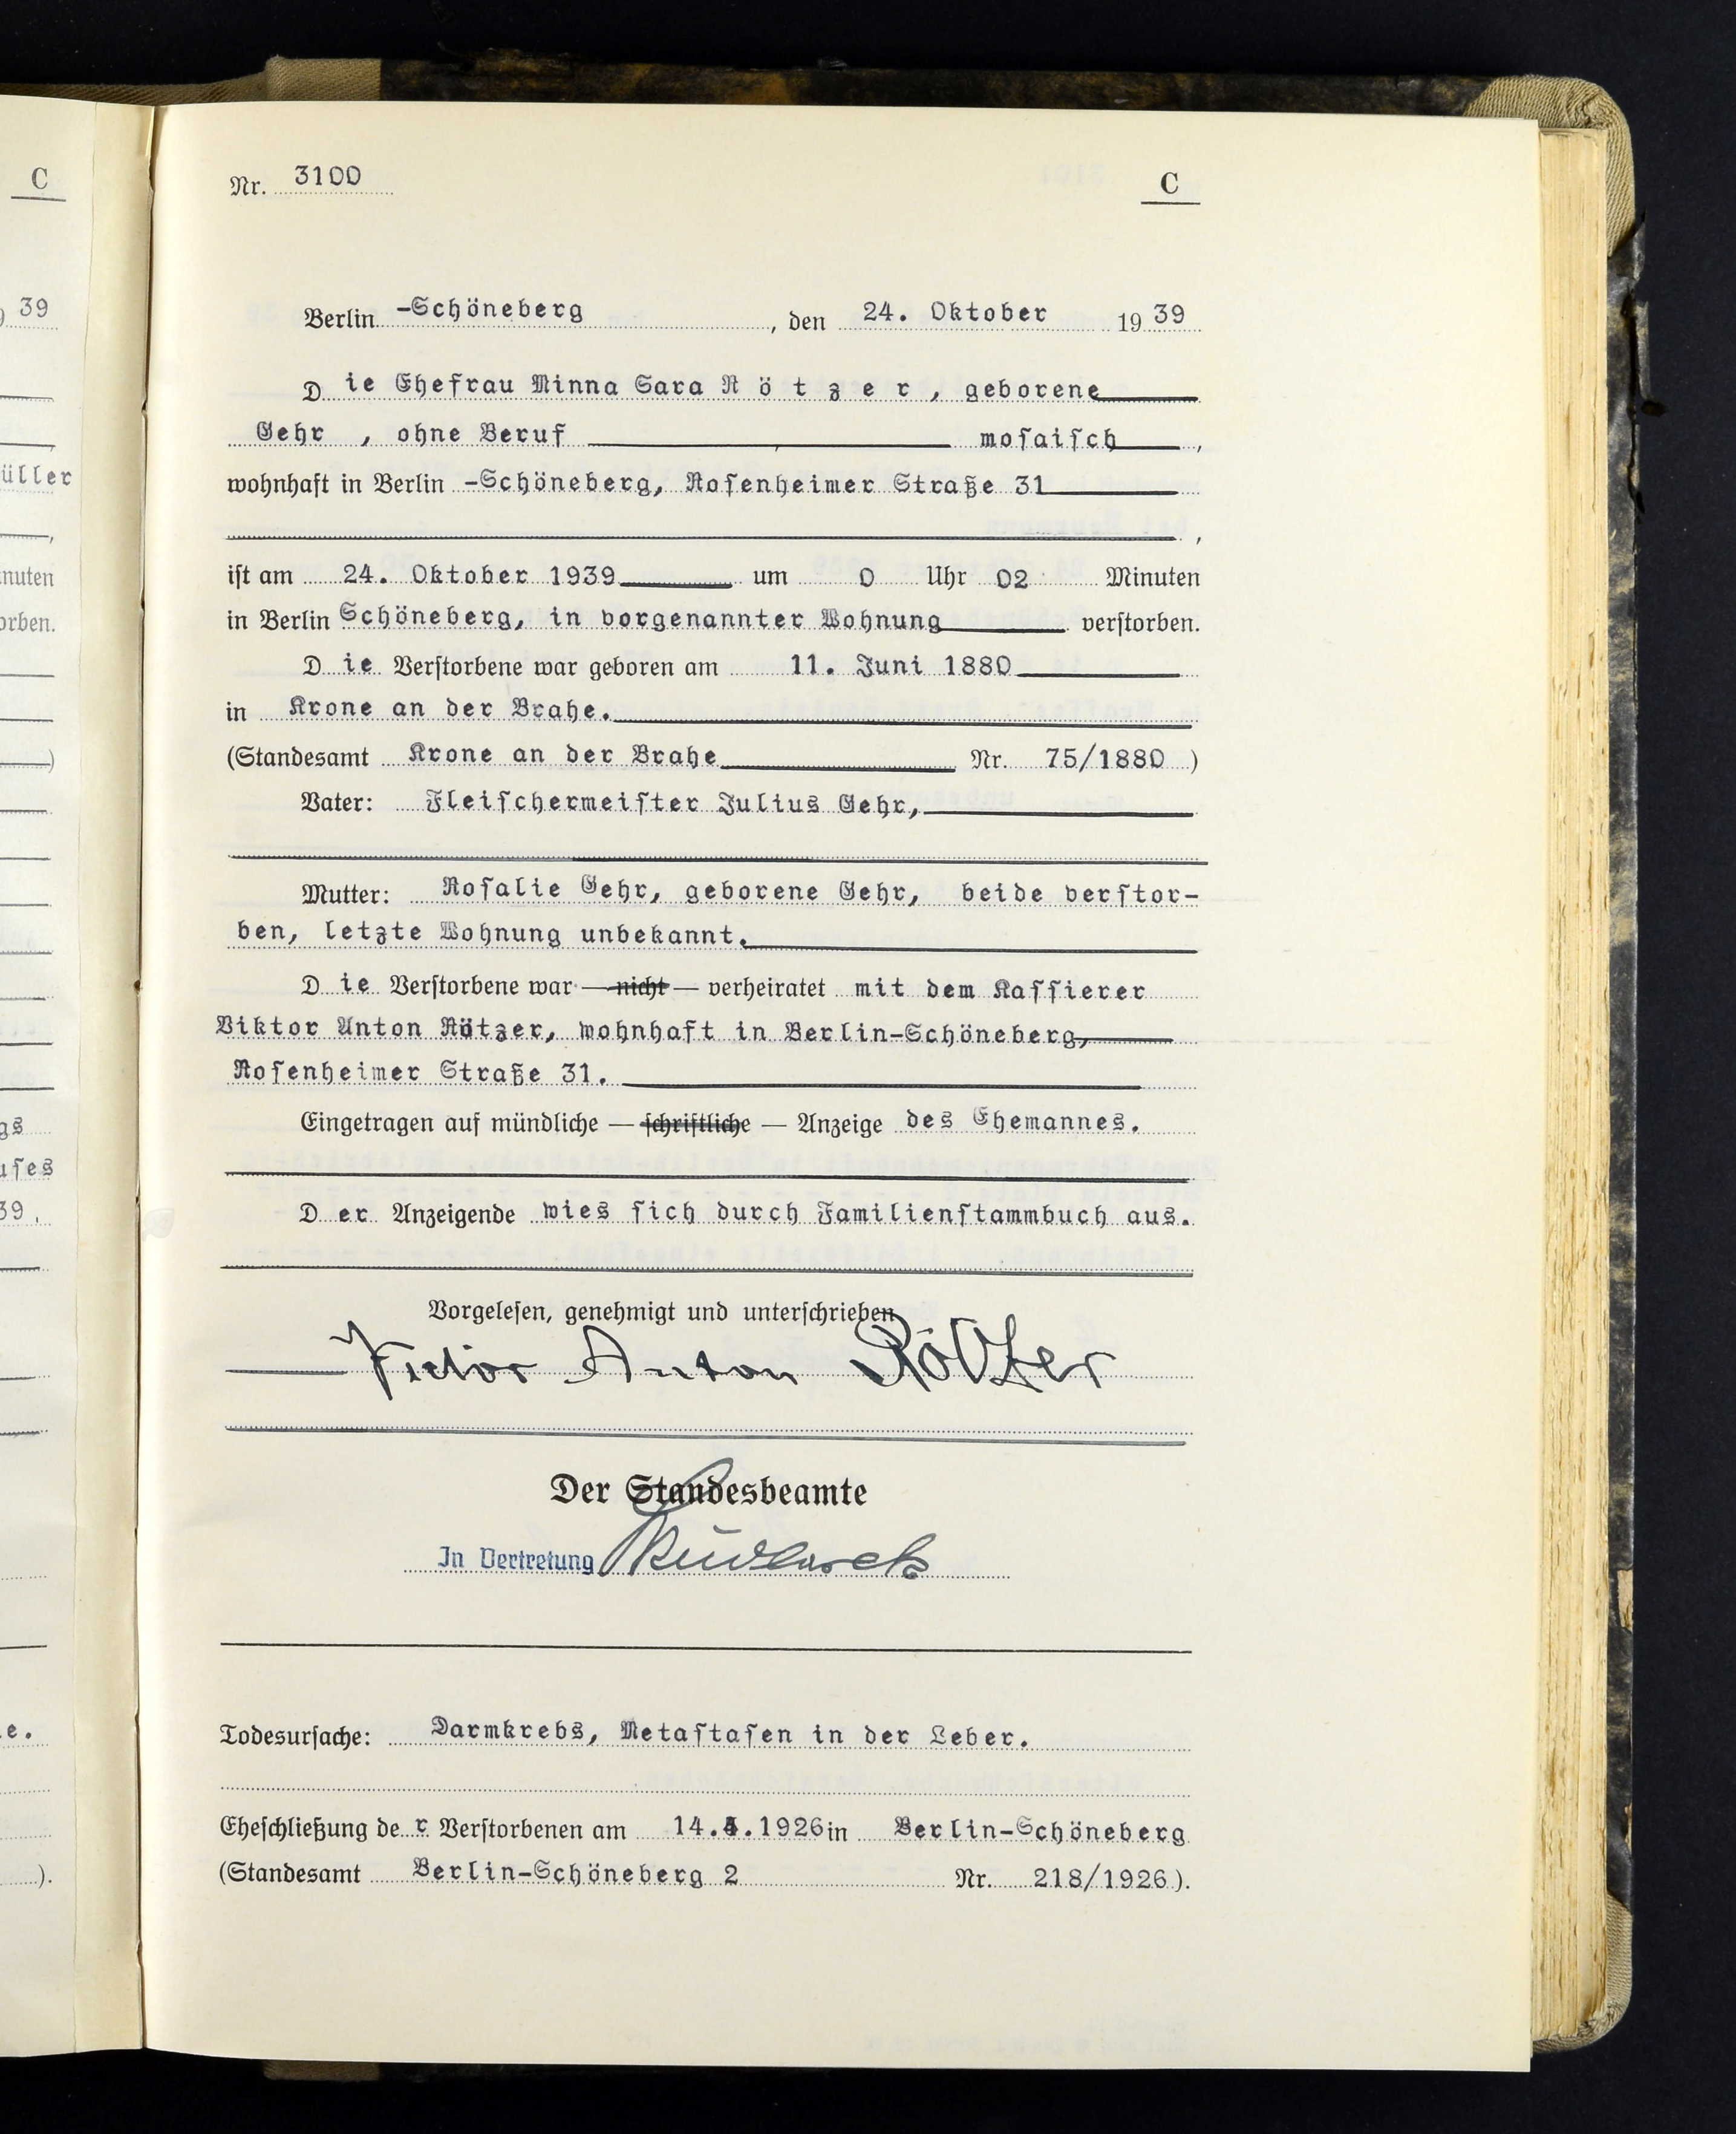 C
39
üller
nuten
orben.
)
gs
uses
39.
e.
).
Nr. 3100
C
Berlin -Schöneberg, den 24. Oktober 1939
Die Ehefrau Minna Sara R ö t z e r , geborene
Gehr , ohne Beruf mosaisch,
wohnhaft in Berlin -Schöneberg, Rosenheimer Straße 31
,
ist am 24. Oktober 1939 um 0 Uhr 02 Minuten
in Berlin Schöneberg, in vorgenannter Wohnung verstorben.
Die Verstorbene war geboren am 11. Juni 1880
in Krone an der Brahe.
(Standesamt Krone an der Brahe Nr. 75/1880 )
Vater: Fleischermeister Julius Gehr,
Mutter: Rosalie Gehr, geborene Gehr, beide verstor-
ben, letzte Wohnung unbekannt.
Die Verstorbene war — nicht — verheiratet mit dem Kassierer
Viktor Anton Rötzer, wohnhaft in Berlin-Schöneberg,
Rosenheimer Straße 31.
Eingetragen auf mündliche — schriftliche — Anzeige des Ehemannes.
Der Anzeigende wies sich durch Familienstammbuch aus.
Vorgelesen, genehmigt und unterschrieben
Victor Anton Rötzer
Der Standesbeamte
In Vertretung
Todesursache: Darmkrebs, Metastasen in der Leber.
Eheschließung der Verstorbenen am 14. .1926 in Berlin-Schöneberg
(Standesamt Berlin-Schöneberg 2 Nr. 218/1926).